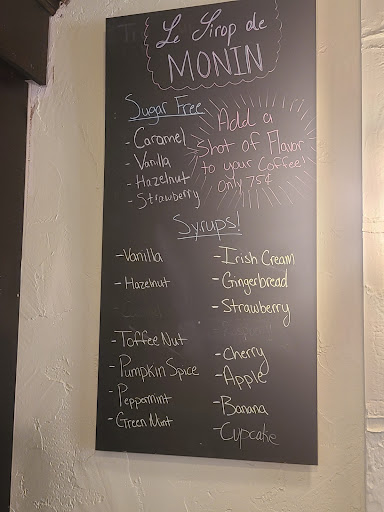 Le Sirop de
MONIN
Sugar Free
- Caramel
- Vanilla
- Hazelnut
- Strawberry
Add a
Shot of Flavor
to your Coffee!
only 75¢
Syrups!
- Vanilla
- Hazelnut
- Toffee Nut
- Pumpkin Spice
- Peppermint
- Green Mint
- Irish Cream
- Gingerbread
- Strawberry
- Cherry
- Apple
- Banana
- Cupcake